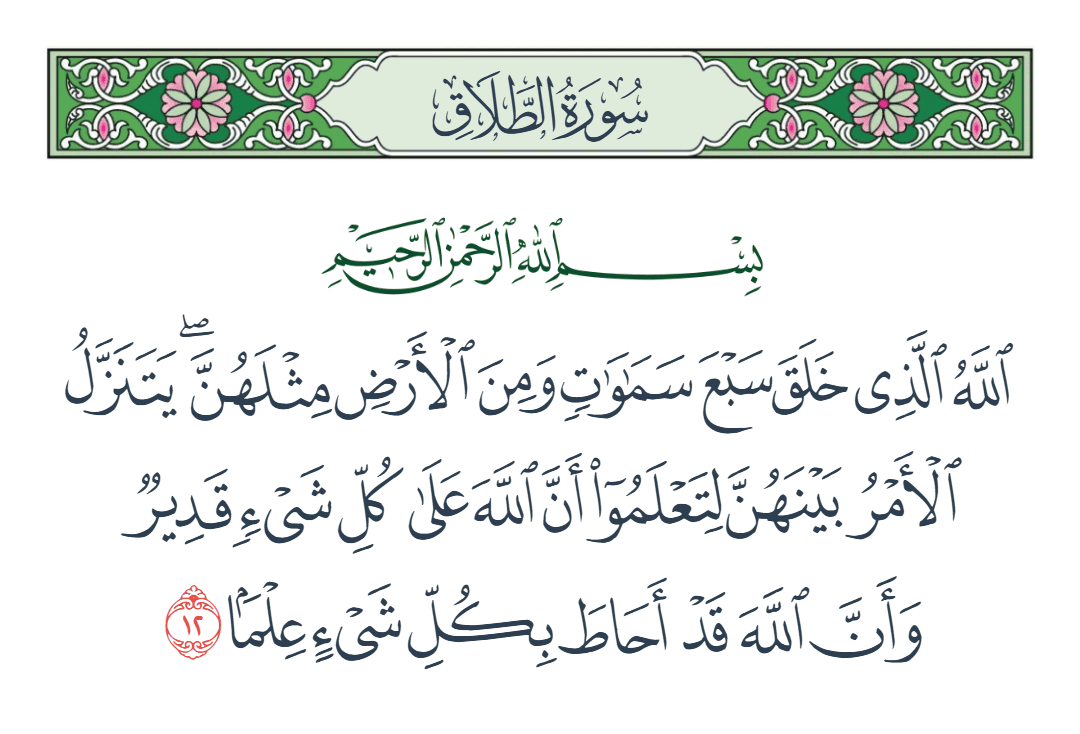 سُورَةُ الطَّلَاقِ
بِسْمِ ٱللَّهِ ٱلرَّحْمَٰنِ ٱلرَّحِيمِ
ٱللَّهُ ٱلَّذِى خَلَقَ سَبْعَ سَمَٰوَٰتٍ وَمِنَ ٱلْأَرْضِ مِثْلَهُنَّ ۖ يَتَنَزَّلُ
ٱلْأَمْرُ بَيْنَهُنَّ لِتَعْلَمُوٓا۟ أَنَّ ٱللَّهَ عَلَىٰ كُلِّ شَىْءٍ قَدِيرٌ
وَأَنَّ ٱللَّهَ قَدْ أَحَاطَ بِكُلِّ شَىْءٍ عِلْمًۢا ١٢